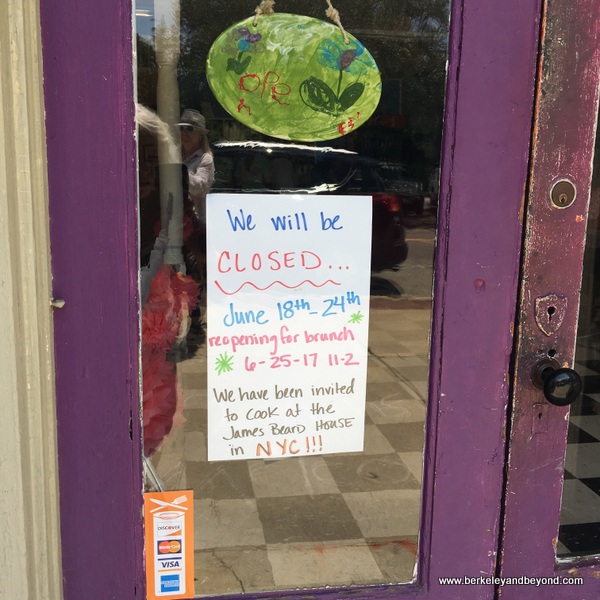 OPE
N
We will be
CLOSED...
June 18th-24th
reopening for brunch
6-25-17 11-2
We have been invited
to cook at the
James Beard HOUSE
in NYC!!!
DISCOVER
MasterCard
VISA
AMERICAN EXPRESS
www.berkeleyandbeyond.com